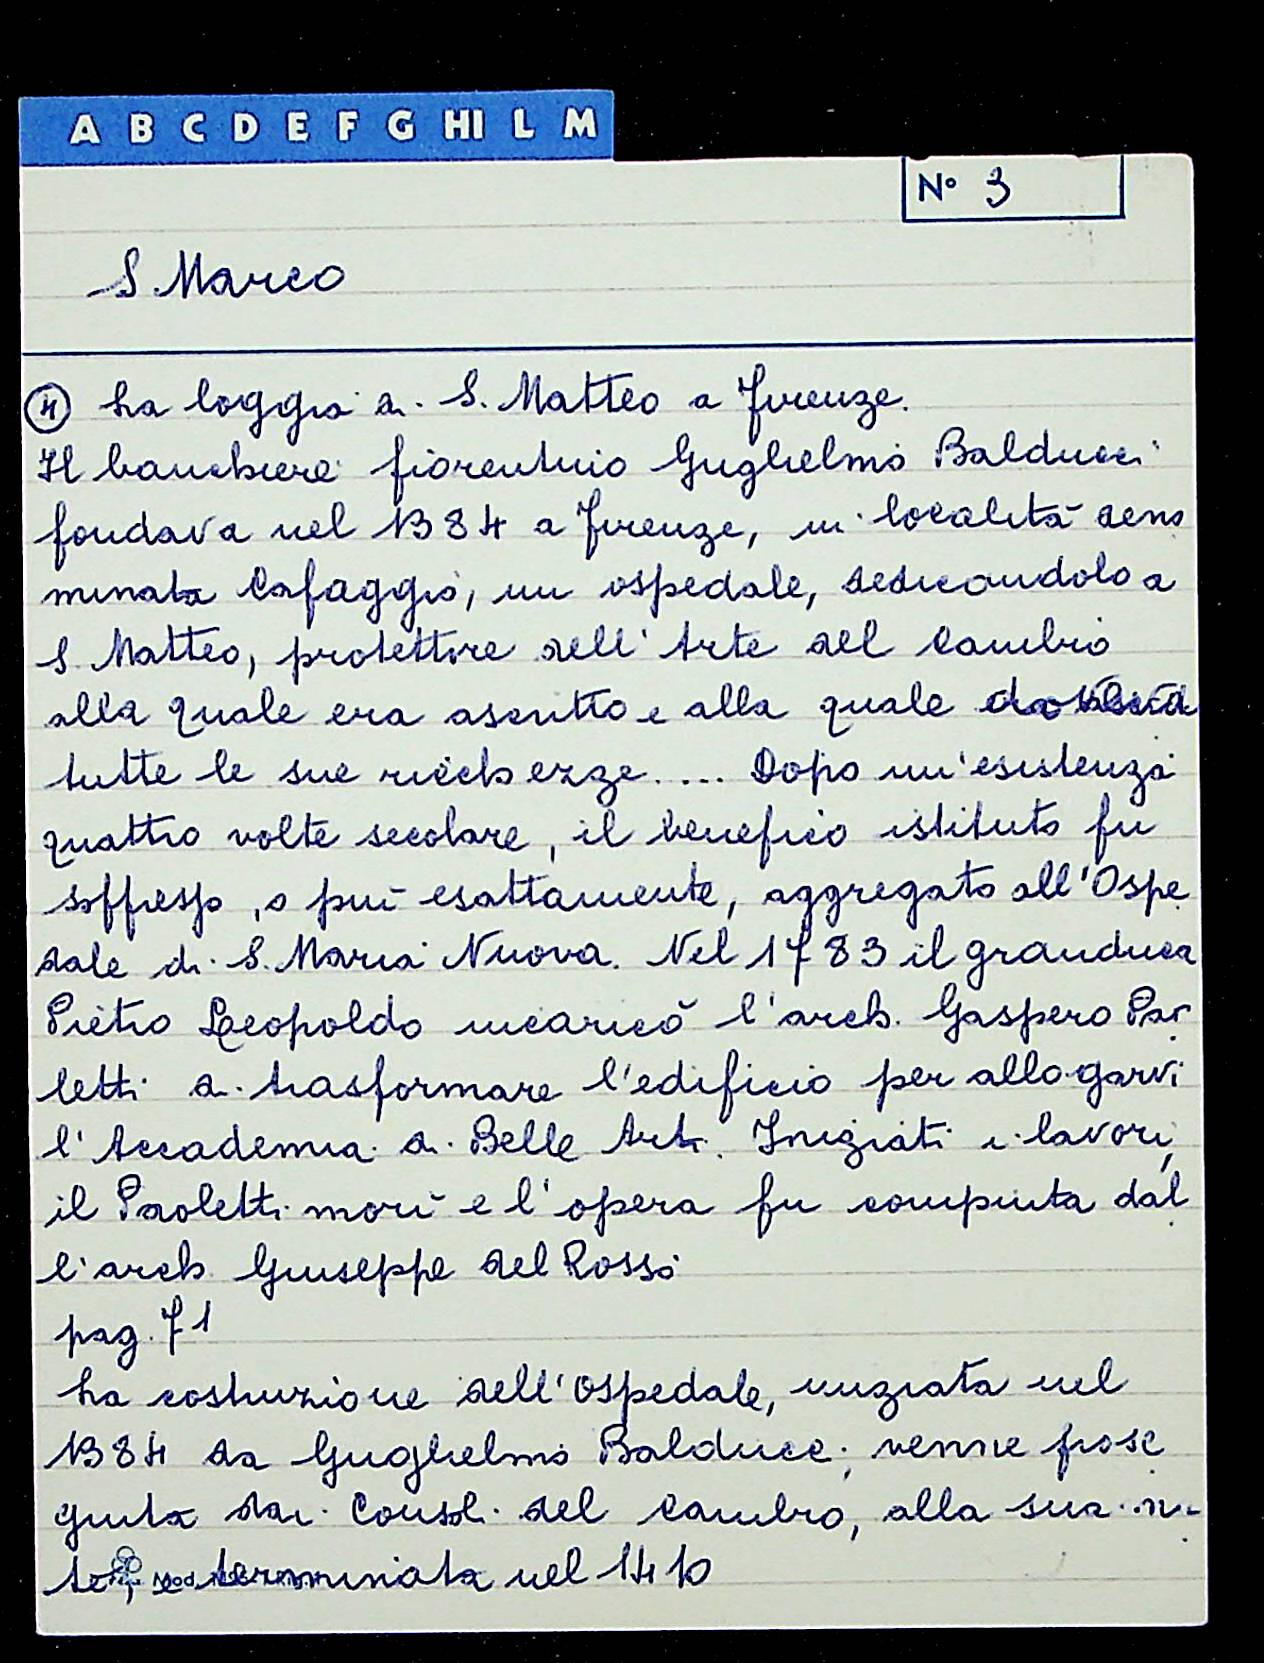 A B C D E F G HI L M
N° 3
S. Marco
④ La loggia di S. Matteo a Firenze.
Il banchiere fiorentino Guglielmo Balducci
fondava nel 1384 a Firenze, in località deno
minata Cafaggio, un ospedale, dedicandolo a
S. Matteo, protettore dell'Arte del Cambio
alla quale era ascritto e alla quale
tutte le sue ricchezze.... Dopo un'esistenza
quattro volte secolare, il benefico istituto fu
soppresso, o più esattamente, aggregato all'Ospe
dale di S. Maria Nuova. Nel 1783 il granduca
Pietro Leopoldo incaricò l'arch. Gaspero Pao
letti a trasformare l'edificio per allogarvi
l'Accademia di Belle Arti. Iniziati i lavori,
il Paoletti morì e l'opera fu compiuta dal
l'arch. Giuseppe del Rosso
pag. 71
La costruzione dell'Ospedale, iniziata nel
1384 da Guglielmo Balducci, venne prose
guita dai Consoli del Cambio, alla sua
terminata nel 1410